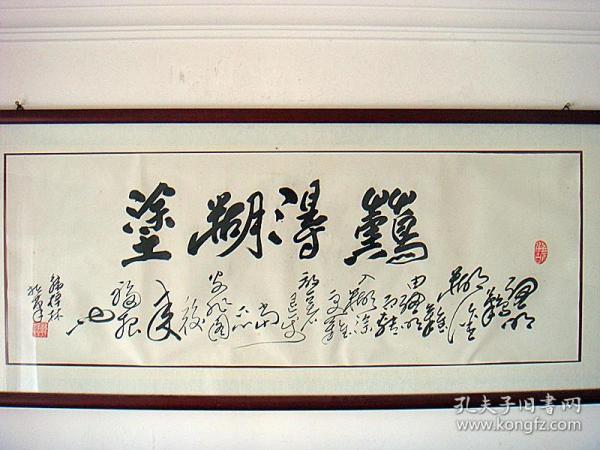 難得糊塗
聰明
難
糊塗
難
由聰明
而轉
入糊塗
更難
放一著
退一步
當
下心
安非圖
後
來
福報
也
孔夫子旧书网
www.kongfz.com